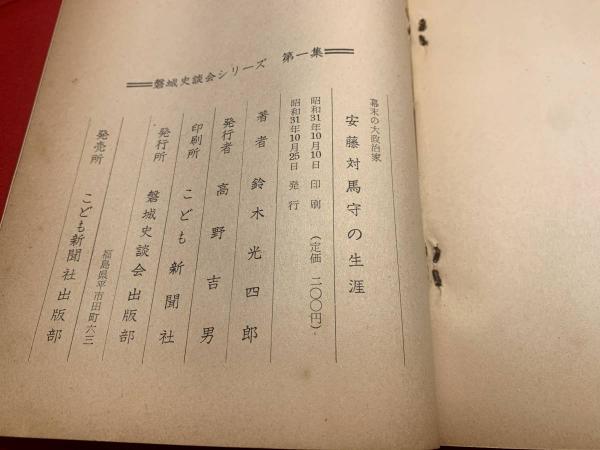 磐城史談会シリーズ 第一集
幕末の大政治家
安藤対馬守の生涯
昭和31年10月10日 印刷 (定価 二〇〇円)
昭和31年10月25日 発行
著者 鈴木光四郎
発行者 高野吉男
印刷所 こども新聞社
発行所 磐城史談会出版部
福島県平市田町六三
発売所 こども新聞社出版部